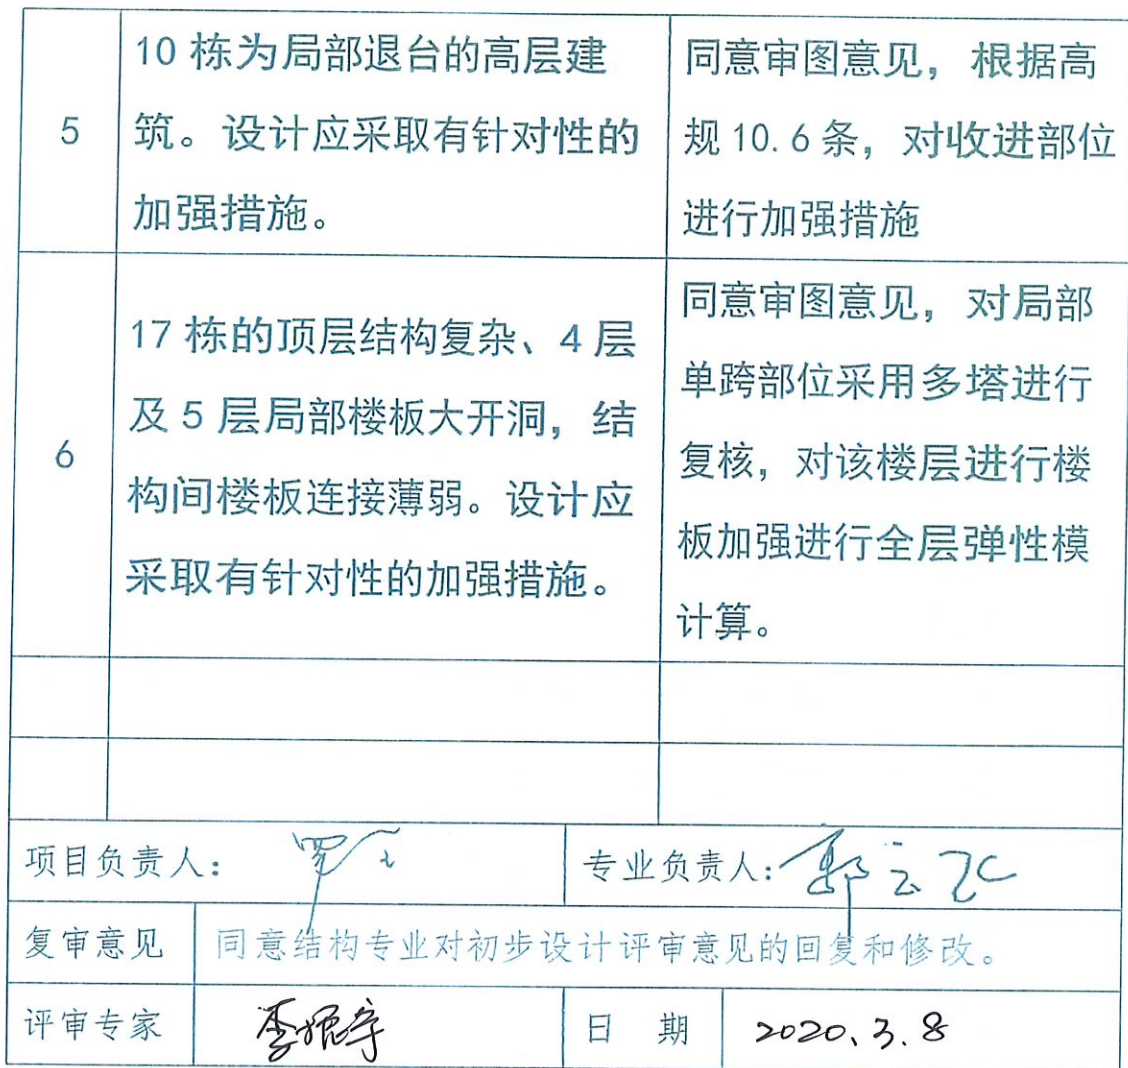 5
10 栋为局部退台的高层建
筑。设计应采取有针对性的
加强措施。
同意审图意见，根据高
规 10.6 条，对收进部位
进行加强措施
6
17 栋的顶层结构复杂、4 层
及 5 层局部楼板大开洞，结
构间楼板连接薄弱。设计应
采取有针对性的加强措施。
同意审图意见，对局部
单跨部位采用多塔进行
复核，对该楼层进行楼
板加强进行全层弹性模
计算。
项目负责人：
专业负责人：
复审意见
同意结构专业对初步设计评审意见的回复和修改。
评审专家
日 期
2020.3.8